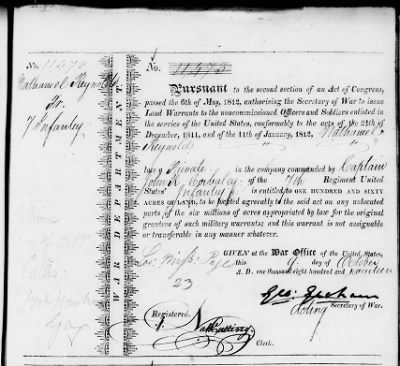 No. 11473
Nathaniel Reynolds
7 Infantry
WAR DEPARTMENT
No. 11473
Pursuant to the second section of an Act of Congress,
passed the 6th of May, 1812, authorising the Secretary of War to issue
Land Warrants to the noncommissioned Officers and Soldiers enlisted
in the service of the United States, conformably to the acts of the 24th
of December, 1811, and of the 11th of January, 1812, Nathaniel
Reynolds
late a Private in the company commanded by Captain
John of the 7th Regiment United
States' Infantry is entitled to ONE HUNDRED AND SIXTY
ACRES OF LAND, to be located agreeably to the said act on any unlocated
parts of the six millions of acres appropriated by law for the original
grantees of such military warrants; and this warrant is not assignable
or transferable in any manner whatever.
GIVEN at the War Office of the United States,
this 9 day of October
A. D. one thousand eight hundred and
23
Geo: Graham
Acting Secretary of War.
Registered.
Nath Cutting
Clerk.